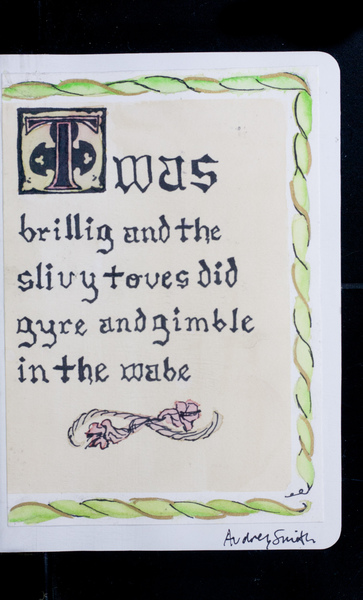 Twas
brillig and the
slivy toves did
gyre and gimble
in the wabe
Audrey Smith